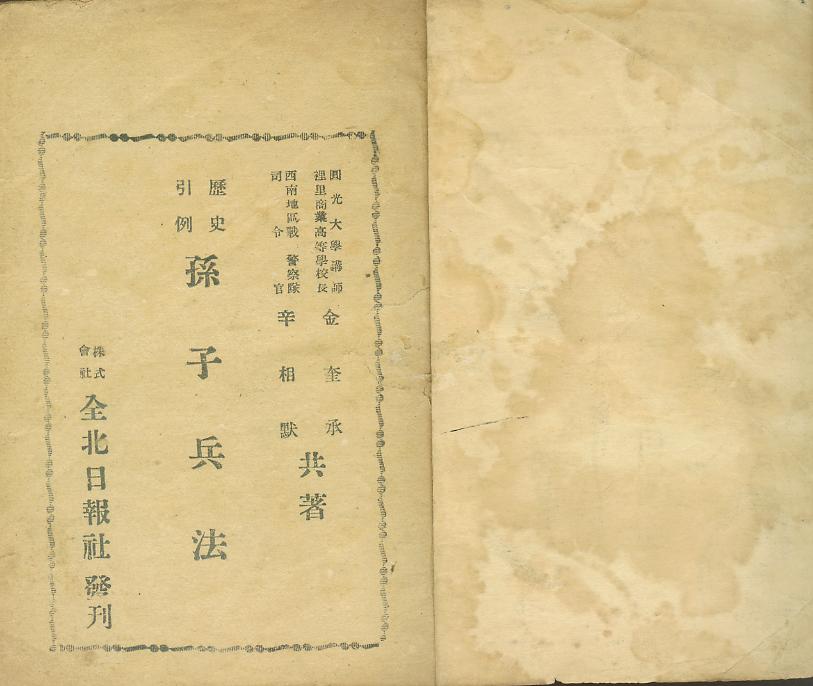 圓光大學講師
裡里商業高等學校長
金奎承
西南地區戰警察隊
司令官
辛相默
共著
歷史
引例
孫子兵法
株式
會社
全北日報社發刊